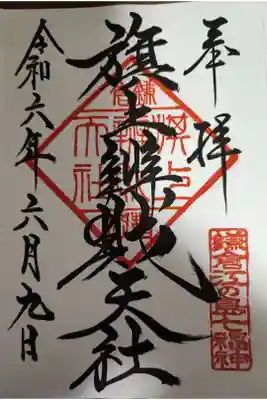 奉拝
旗上辨財天社
令和六年六月九日
鎌倉江の島七福神